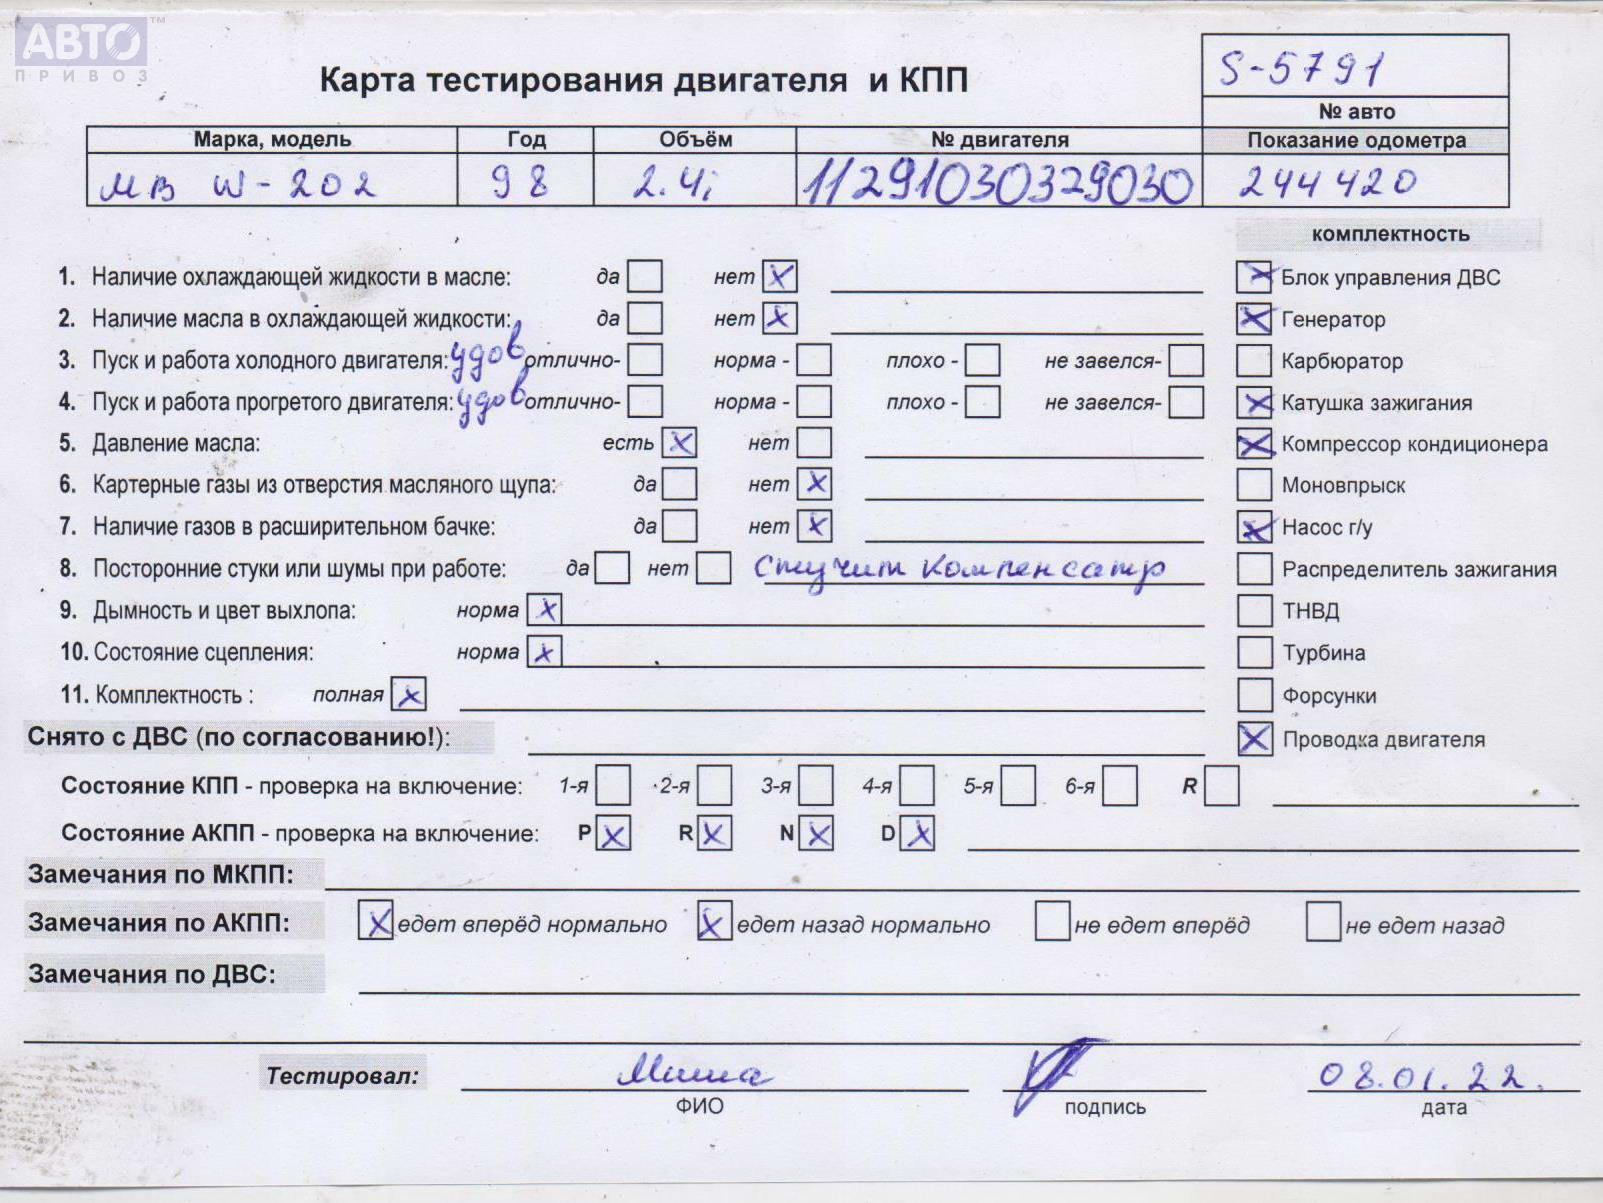 АВТО™
ПРИВОЗ
S-5791
Карта тестирования двигателя и КПП
№ авто
Марка, модель Год Объём № двигателя Показание одометра
МВ W-202 98 2.4i 11291030329030 244420
комплектность
1. Наличие охлаждающей жидкости в масле: да нет X X Блок управления ДВС
2. Наличие масла в охлаждающей жидкости: да нет X X Генератор
3. Пуск и работа холодного двигателя: удов отлично- норма - плохо - не завелся- Карбюратор
4. Пуск и работа прогретого двигателя: удов отлично- норма - плохо - не завелся- X Катушка зажигания
5. Давление масла: есть X нет X Компрессор кондиционера
6. Картерные газы из отверстия масляного щупа: да нет X Моновпрыск
7. Наличие газов в расширительном бачке: да нет X X Насос г/у
8. Посторонние стуки или шумы при работе: да нет Стучит компенсатр Распределитель зажигания
9. Дымность и цвет выхлопа: норма X ТНВД
10. Состояние сцепления: норма X Турбина
11. Комплектность : полная X Форсунки
Снято с ДВС (по согласованию!): X Проводка двигателя
Состояние КПП - проверка на включение: 1-я 2-я 3-я 4-я 5-я 6-я R
Состояние АКПП - проверка на включение: P X R X N X D X
Замечания по МКПП:
Замечания по АКПП: X едет вперёд нормально X едет назад нормально не едет вперёд не едет назад
Замечания по ДВС:
Тестировал: Миша 08.01.22.
ФИО подпись дата